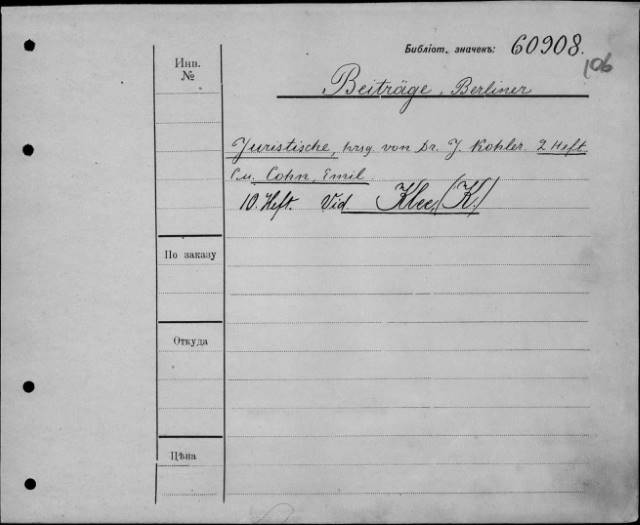 Библіот. значекъ: 60908.
106
Инв.
№
Beiträge, Berliner
Juristische, hrsg. von Dr. J. Kohler. 2 Heft.
См. Cohn, Emil
10. Heft. Vid Klee, (K.)
По заказу
Откуда
Цѣна